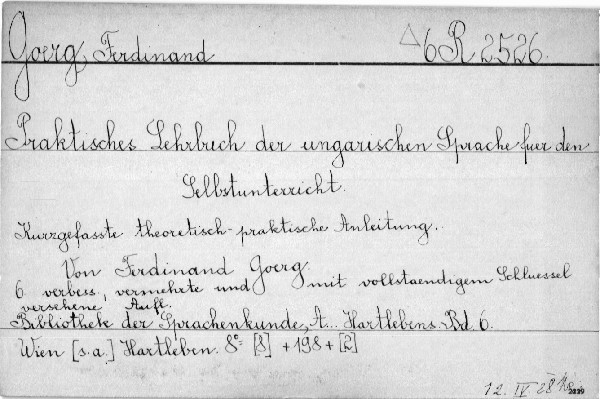 Goerg, Ferdinand △6 R 2526.
Praktisches Lehrbuch der ungarischen Sprache fuer den
Selbstunterricht.
Kurzgefasste theoretisch-praktische Anleitung.
Von Ferdinand Goerg.
6 verbess., vermehrte und mit vollstaendigem Schluessel
versehene Aufl.
Bibliothek der Sprachenkunde, A... Hartlebens Bd. 6.
Wien [s.a.] Hartleben. 8° [8] + 198 + [2]
12. IV 28